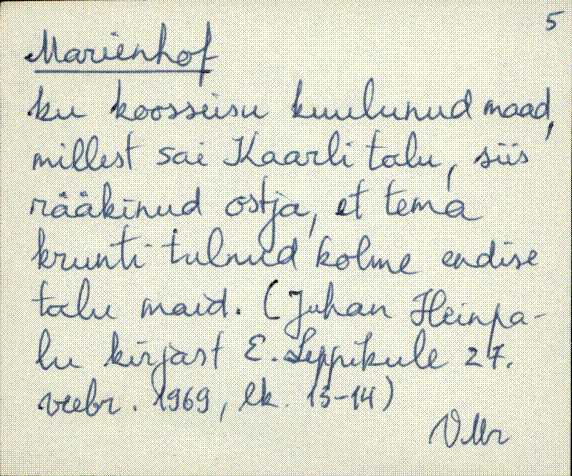 5
Marienhof
ku koosseisu kuulunud maad,
millest sai Kaarli talu, siis
rääkinud ostja, et tema
krunti tulnud kolme endise
talu maid. (Juhan Heinpa-
lu kirjast E. Leppikule 27.
veebr. 1969, lk. 13-14)